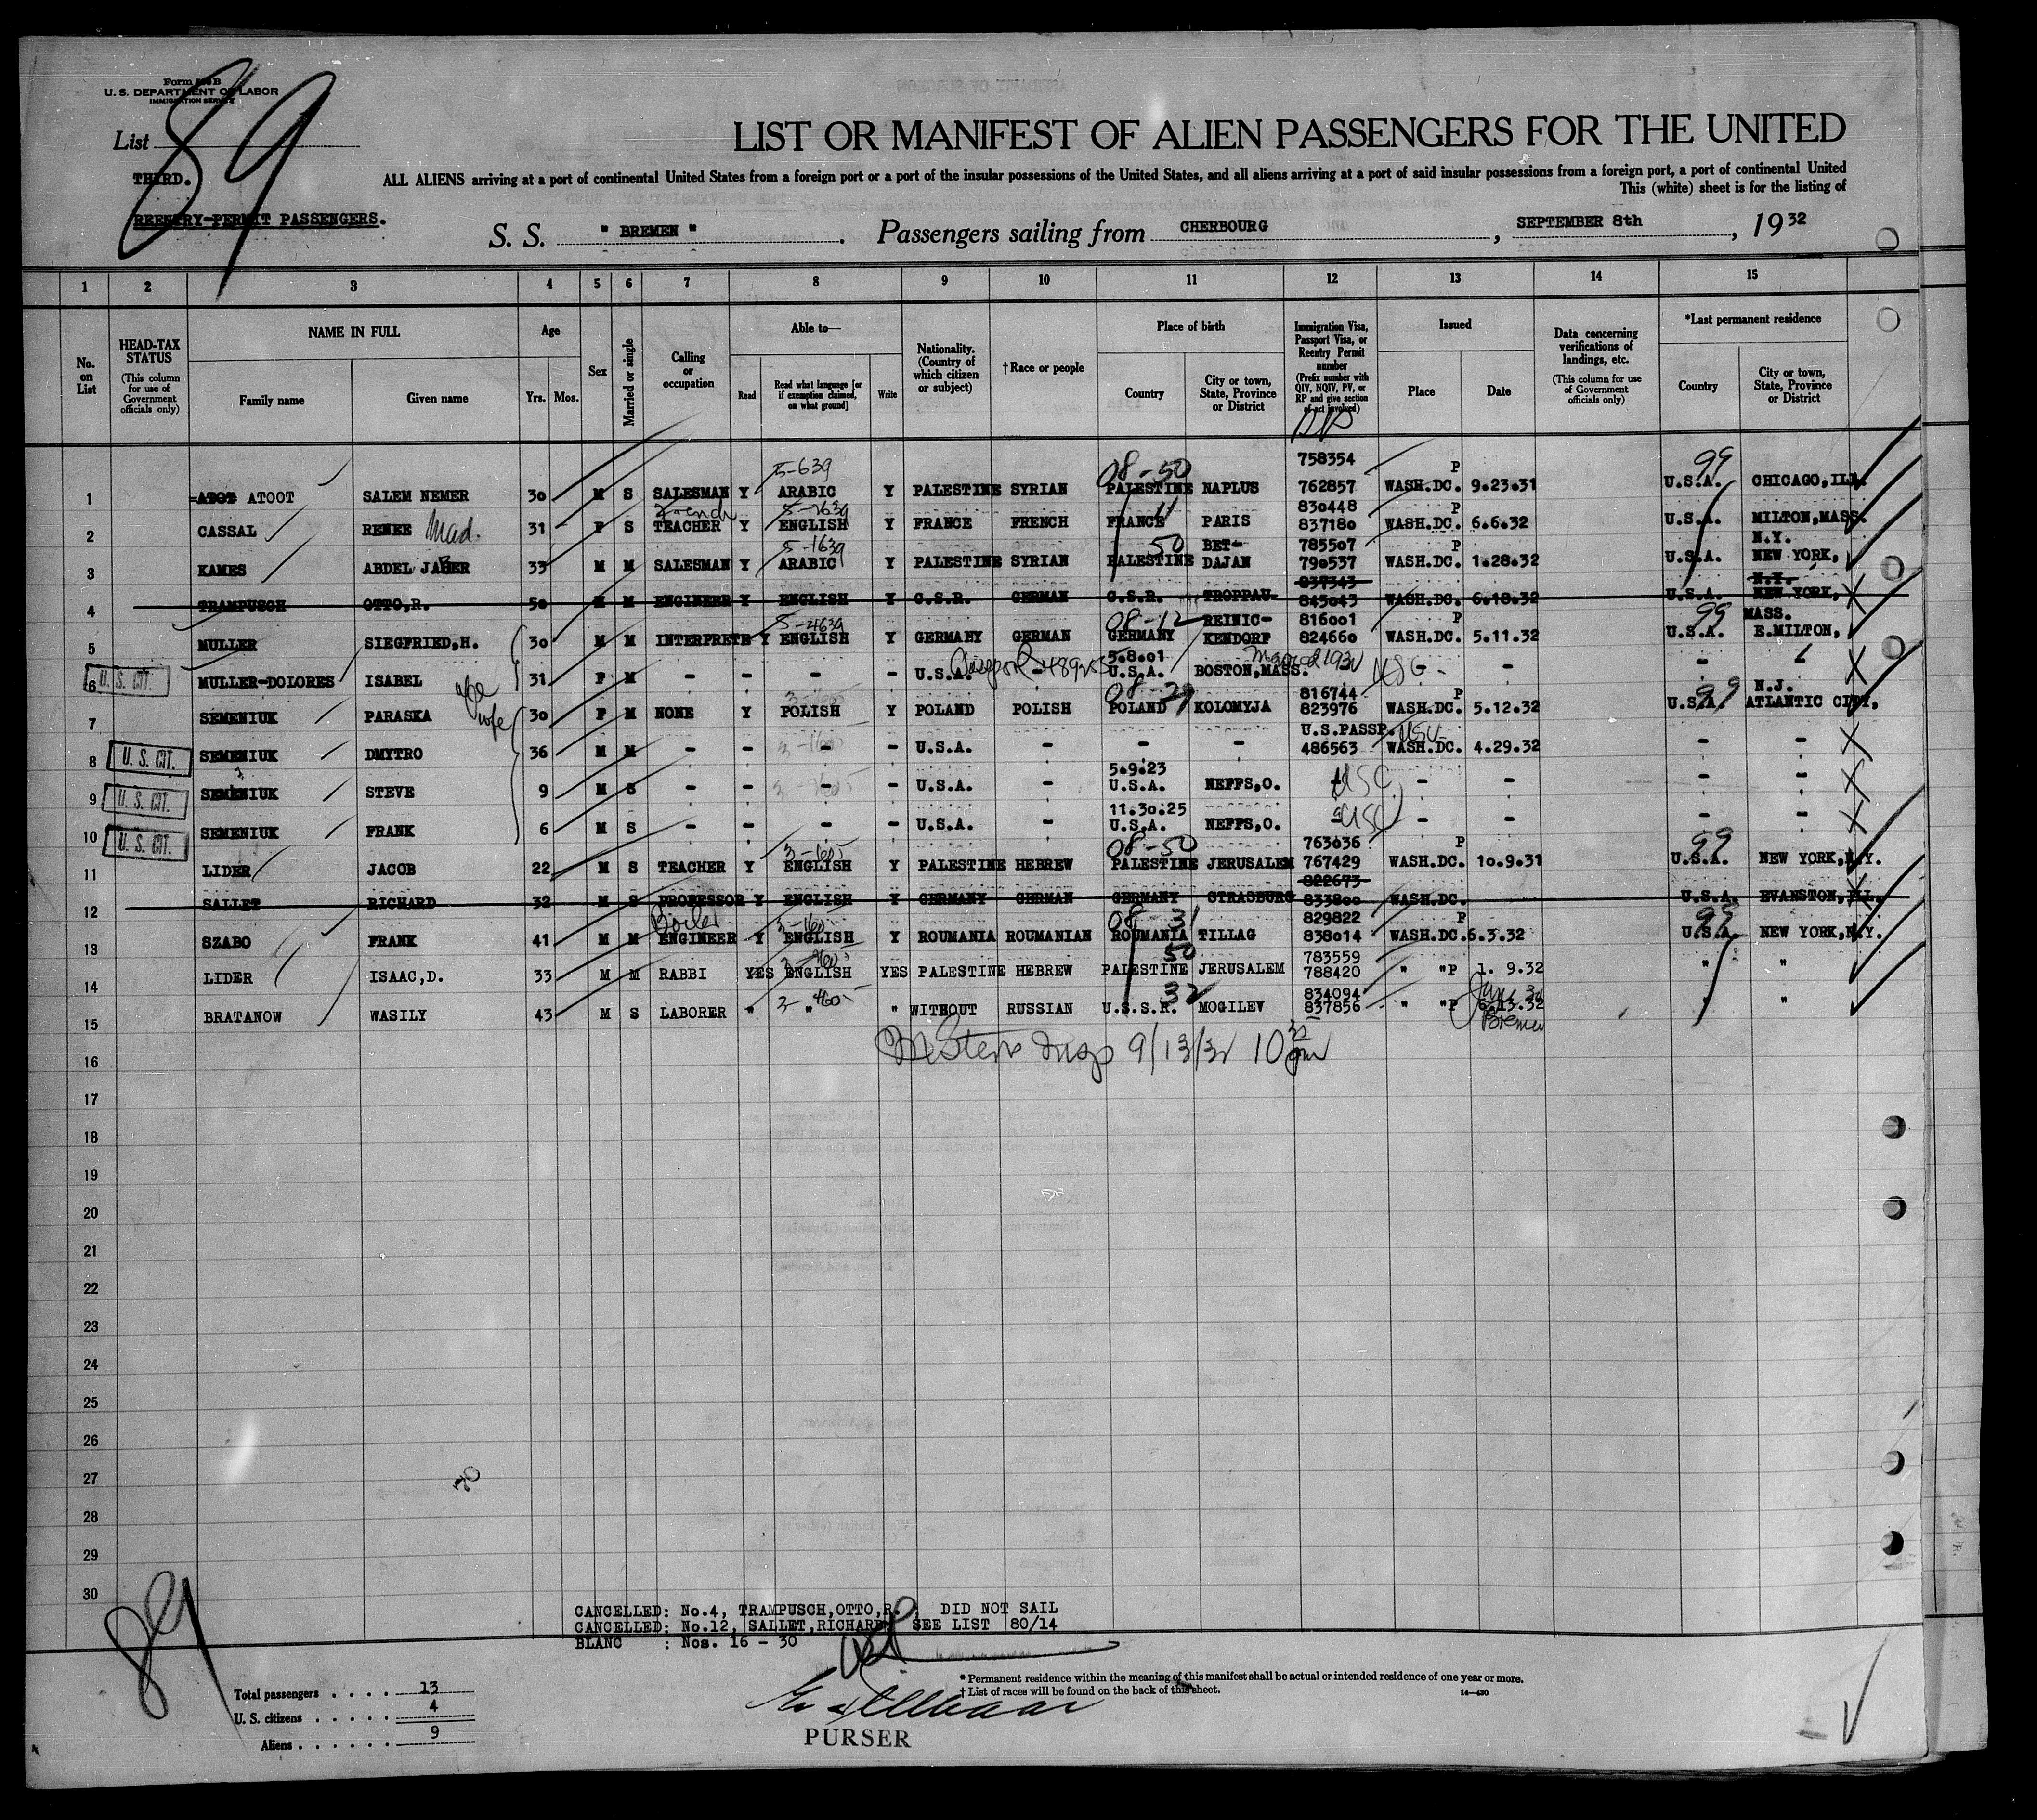 Form 500 B
U. S. DEPARTMENT OF LABOR
IMMIGRATION SERVICE
List
89
THIRD.
REENTRY-PERMIT PASSENGERS.
LIST OR MANIFEST OF ALIEN PASSENGERS FOR THE UNITED
ALL ALIENS arriving at a port of continental United States from a foreign port or a port of the insular possessions of the United States, and all aliens arriving at a port of said insular possessions from a foreign port, a port of continental United
This (white) sheet is for the listing of
S. S. " BREMEN " . Passengers sailing from CHERBOURG , SEPTEMBER 8th , 19 32
1 2 3 4 5 6 7 8 9 10 11 12 13 14 15
No. on List
HEAD-TAX STATUS
(This column for use of Government officials only)
NAME IN FULL
Family name
Given name
Age
Yrs. Mos.
Sex
Married or single
Calling or occupation
Able to—
Read
Read what language [or if exemption claimed, on what ground]
Write
Nationality. (Country of which citizen or subject)
†Race or people
Place of birth
Country
City or town, State, Province or District
Immigration Visa, Passport Visa, or Reentry Permit number
(Prefix number with QIV, NQIV, PV, or RP and give section of act involved)
RP
Issued
Place
Date
Data concerning verifications of landings, etc.
(This column for use of Government officials only)
*Last permanent residence
Country
City or town, State, Province or District
5-639 08-50 758354 P 99
1 ATOT ATOOT SALEM NEMER 30 M S SALESMAN Y ARABIC Y PALESTINE SYRIAN PALESTINE NAPLUS 762857 WASH.DC. 9.23.31 U.S.A. CHICAGO,ILL.
French 5-1639 11 830448 P
2 CASSAL RENEE Mad. 31 F S TEACHER Y ENGLISH Y FRANCE FRENCH FRANCE PARIS 837180 WASH.DC. 6.6.32 U.S.A. MILTON,MASS.
5-1639 50 BET- 785507 P N.Y.
3 KAMES ABDEL JABER 33 M M SALESMAN Y ARABIC Y PALESTINE SYRIAN PALESTINE DAJAN 790537 WASH.DC. 1.28.32 U.S.A. NEW YORK,
837343 N.Y.
4 TRAMPUSCH OTTO,R. 50 M M ENGINEER Y ENGLISH Y C.S.R. GERMAN C.S.R. TROPPAU- 843043 WASH.DC. 6.18.32 U.S.A. NEW YORK,
5-4639 08-12 REINIC- 816001 P 99 MASS.
5 MULLER SIEGFRIED,H. 30 M M INTERPRETE Y ENGLISH Y GERMANY GERMAN GERMANY KENDORF 824660 WASH.DC. 5.11.32 U.S.A. E.MILTON,
5.8.01
6 U. S. CIT. MULLER-DOLORES ISABEL 31 F M - - - - U.S.A. - U.S.A. BOSTON,MASS. USC - - - -
wife 08-29 816744 P 99 N.J.
7 SEMENIUK PARASKA 30 F M NONE Y POLISH Y POLAND POLISH POLAND KOLOMYJA 823976 WASH.DC. 5.12.32 U.S.A. ATLANTIC CITY,
U.S.PASSP. USC
8 U. S. CIT. SEMENIUK DMYTRO 36 M M - - - - U.S.A. - - - 486563 WASH.DC. 4.29.32 - -
5.9.23
9 U. S. CIT. SEMENIUK STEVE 9 M S - - - - U.S.A. - U.S.A. NEFFS,O. USC - - - -
11.30.25
10 U. S. CIT. SEMENIUK FRANK 6 M S - - - - U.S.A. - U.S.A. NEFFS,O. USC - - - -
3-1605 08-50 763636 P 99
11 LIDER JACOB 22 M S TEACHER Y ENGLISH Y PALESTINE HEBREW PALESTINE JERUSALEM 767429 WASH.DC. 10.9.31 U.S.A. NEW YORK,N.Y.
822673
12 SALLET RICHARD 32 M S PROFESSOR Y ENGLISH Y GERMANY GERMAN GERMANY STRASBURG 833800 WASH.DC. U.S.A. EVANSTON,ILL.
Boiler 3-160 08 31 829822 P 99
13 SZABO FRANK 41 M M ENGINEER Y ENGLISH Y ROUMANIA ROUMANIAN ROUMANIA TILLAG 838014 WASH.DC. 6.3.32 U.S.A. NEW YORK,N.Y.
50 783559
14 LIDER ISAAC,D. 33 M M RABBI YES ENGLISH YES PALESTINE HEBREW PALESTINE JERUSALEM 788420 " "P 1. 9.32 " "
3-460- 32 834094
15 BRATANOW WASILY 43 M S LABORER " " " WITHOUT RUSSIAN U.S.S.R. MOGILEV 837856 " "P 6.13.32 " "
Bremen
9/13/32 10 30 pm
16
17
18
19
20
21
22
23
24
25
26
27
28
29
30
CANCELLED: No.4, TRAMPUSCH,OTTO,R. DID NOT SAIL
CANCELLED: No.12, SALLET,RICHARD SEE LIST 80/14
BLANC : Nos. 16 - 30
89
Total passengers . . . . 13
U. S. citizens . . . . . 4
Aliens . . . . . . 9
PURSER
* Permanent residence within the meaning of this manifest shall be actual or intended residence of one year or more.
† List of races will be found on the back of this sheet.
14-430